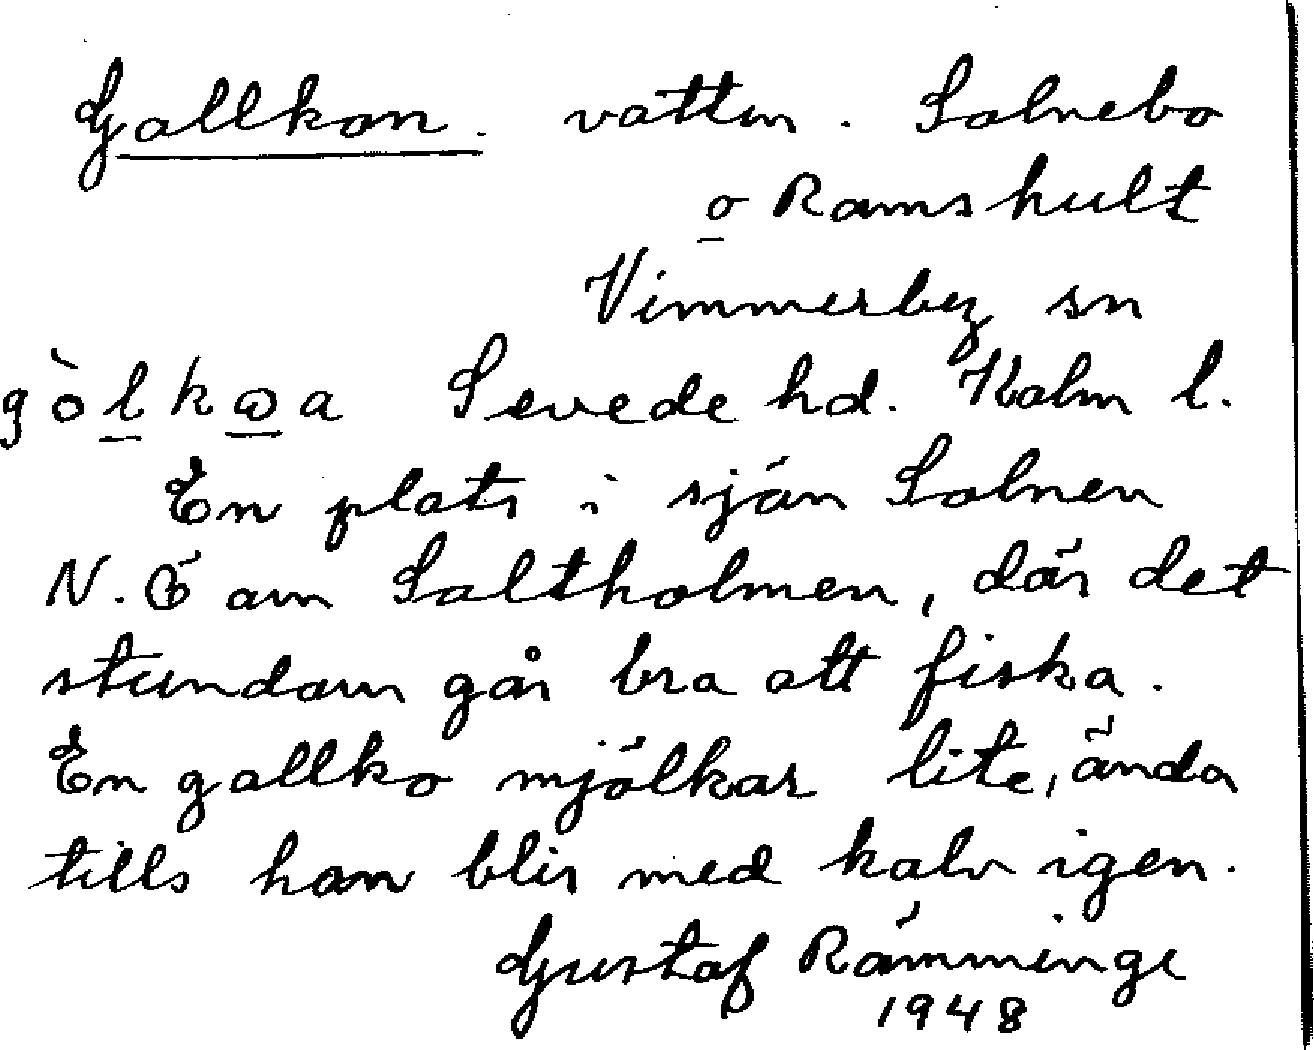 Gallkon. vatten. Solnebo
o Ramshult
Vimmerby sn
gòlkωa Sevede hd. Kalm l.
En plats i sjön Solnen
N.Ö om Saltholmen, där det
stundom går bra att fiska.
En gallko mjölkar lite, ända
tills hon blir med kalv igen.
Gustaf Rämminge
1948